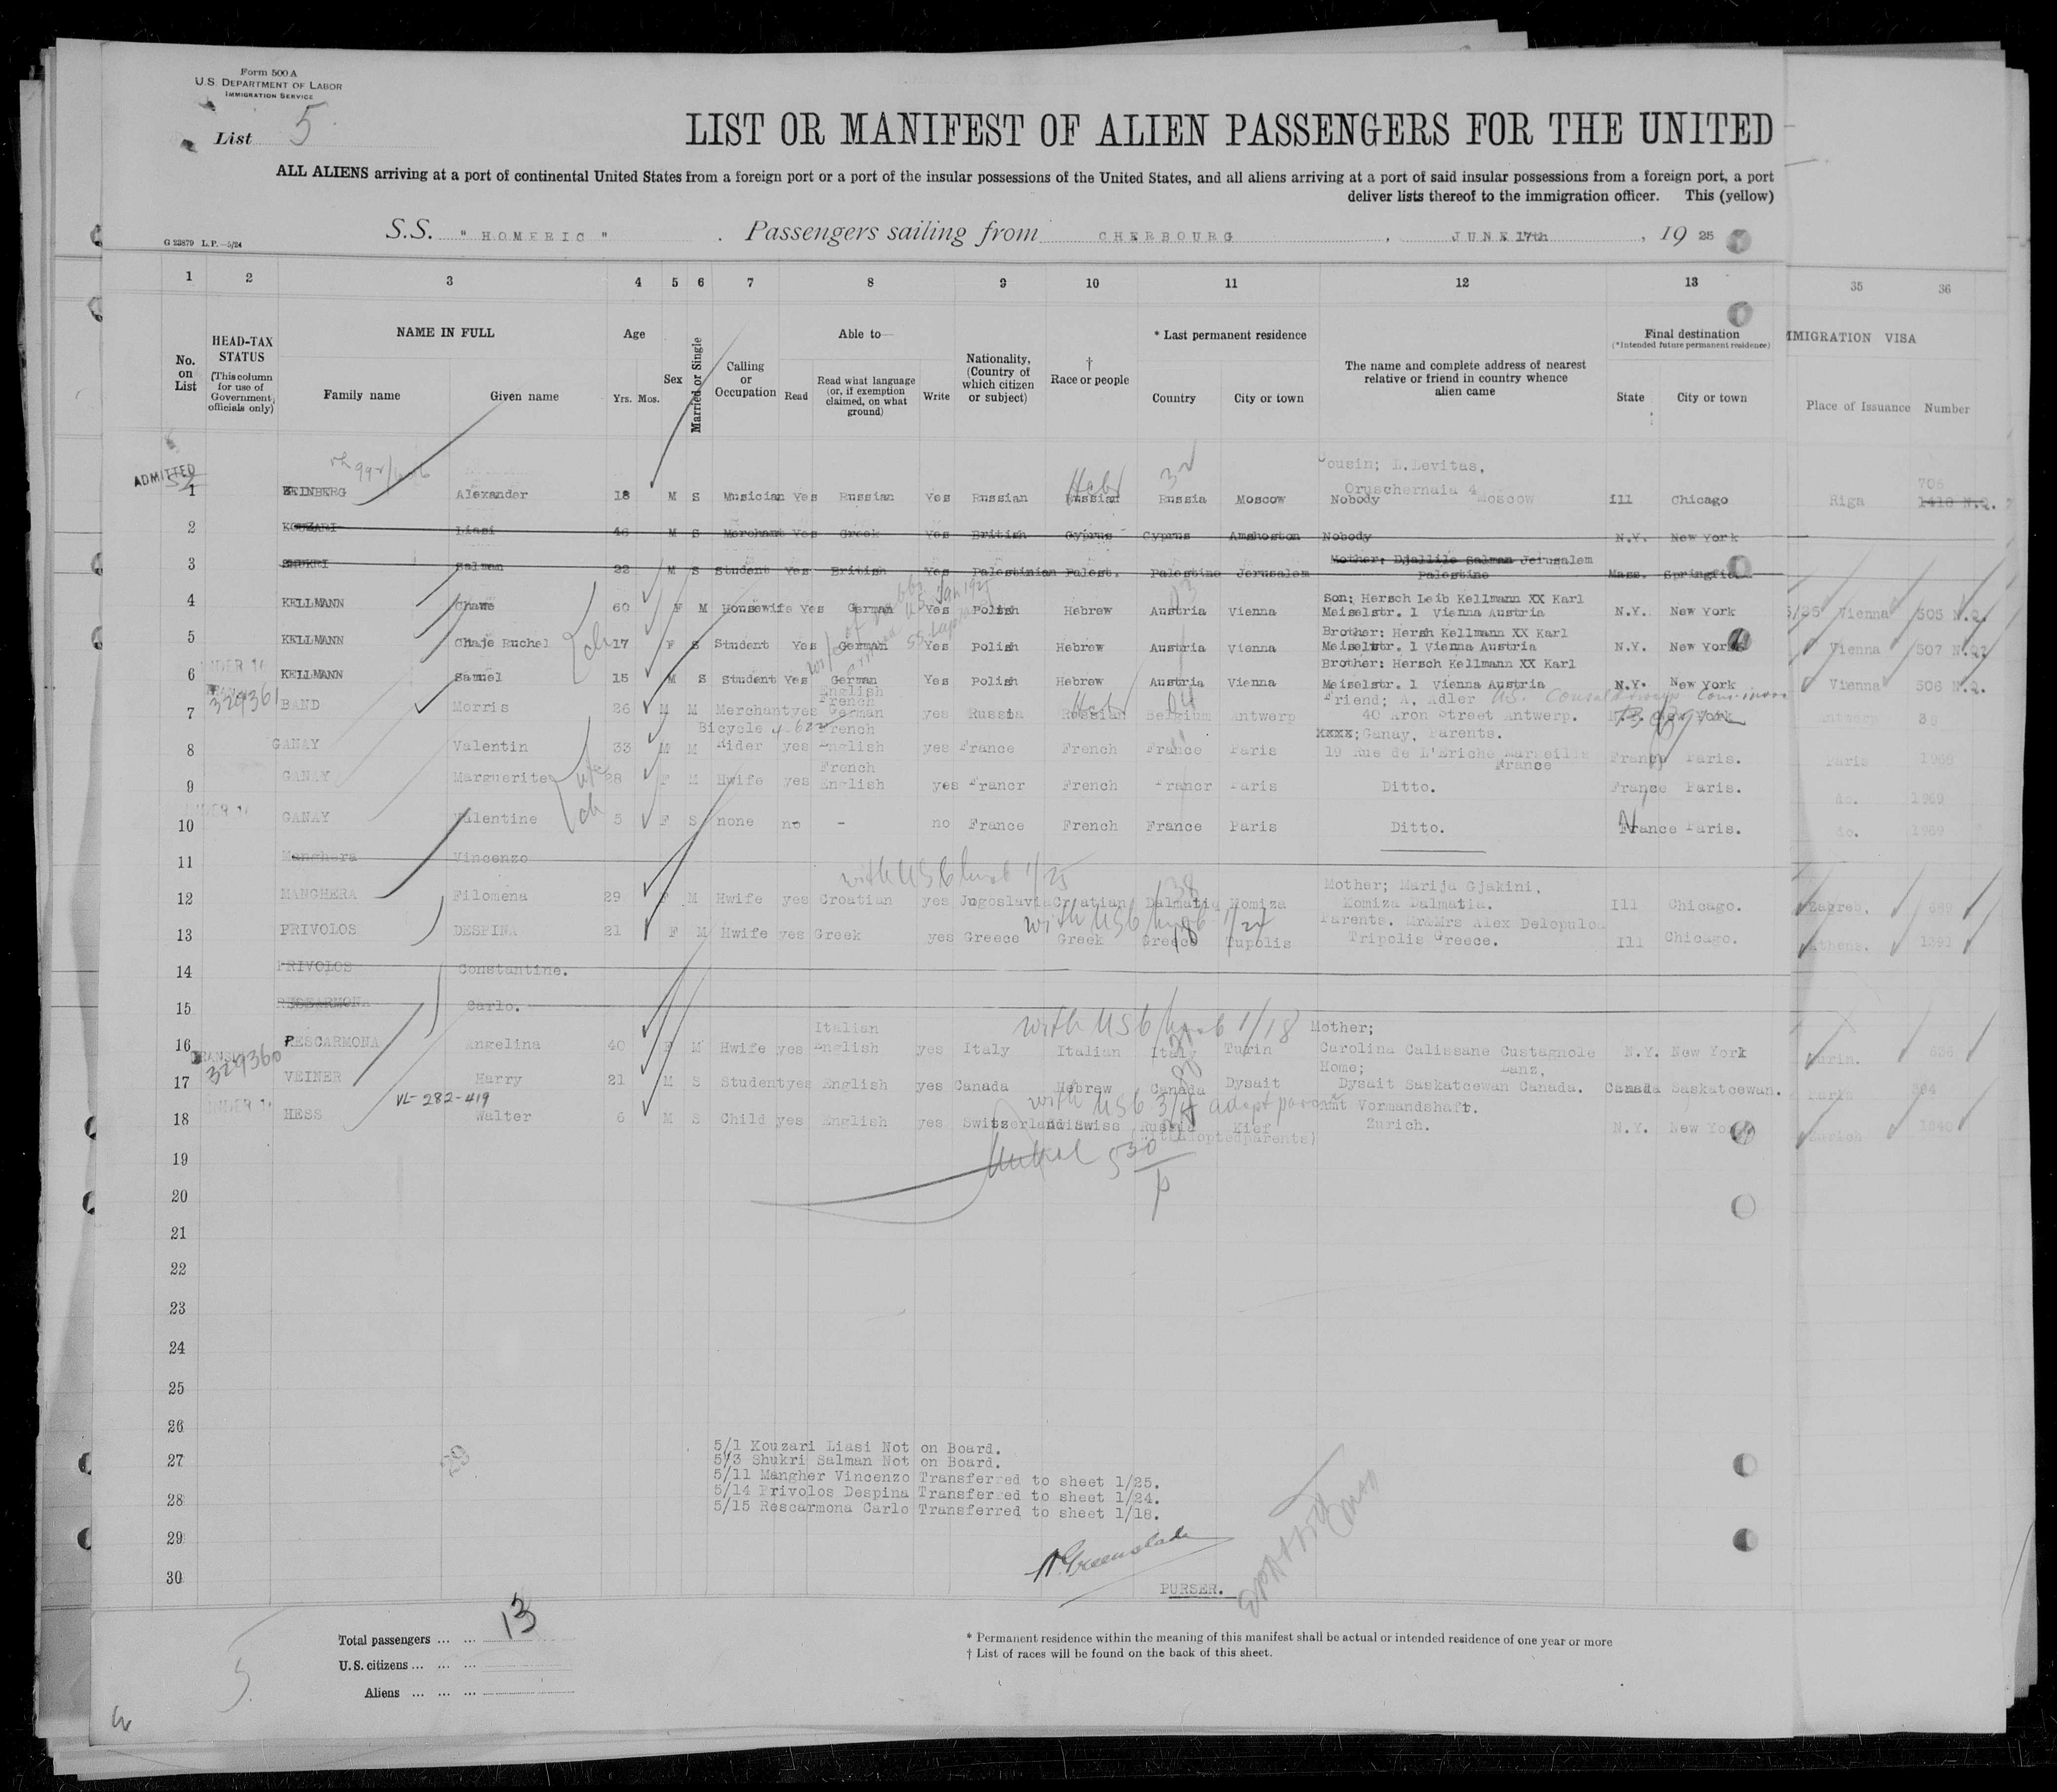 Form 500 A
U.S. DEPARTMENT OF LABOR
IMMIGRATION SERVICE
List 5
LIST OR MANIFEST OF ALIEN PASSENGERS FOR THE UNITED
ALL ALIENS arriving at a port of continental United States from a foreign port or a port of the insular possessions of the United States, and all aliens arriving at a port of said insular possessions from a foreign port, a port
deliver lists thereof to the immigration officer. This (yellow)
G 23879 L.P.—5/24
S.S. "HOMERIC" . Passengers sailing from CHERBOURG , JUNE 17th , 19 25
1 2 3 4 5 6 7 8 9 10 11 12 13 35 36
No. on List
HEAD-TAX STATUS (This column for use of Government officials only)
NAME IN FULL
Family name Given name
Age Yrs. Mos.
Sex
Married or Single
Calling or Occupation
Able to
Read Read what language (or, if exemption claimed, on what ground) Write
Nationality, (Country of which citizen or subject)
† Race or people
* Last permanent residence
Country City or town
The name and complete address of nearest relative or friend in country whence alien came
Final destination
(*Intended future permanent residence)
State City or town
IMMIGRATION VISA
Place of Issuance Number
ADMITTED
Cousin; L. Levitas,
Oruschernaia 4 Moscow
1 ZEINBERG Alexander 18 M S Musician Yes Russian Yes Russian Russian Hebr Russia Moscow Nobody Ill Chicago Riga 706 1418 N.Q.
2 KOUZARI Liasi 46 M S Merchant Yes Greek Yes British Cyprus Cyprus Amahoston Nobody N.Y. New York
3 SHUKRI Salman 22 M S Student Yes British Yes Palestinian Palest. Palestine Jerusalem Mother; Djallile Salman Jerusalem Palestine Mass. Springfie
4 KELLMANN Chawe 60 F M Housewife Yes German Yes Polish Hebrew Austria Vienna Son; Hersch Leib Kellmann XX Karl Meiselstr. 1 Vienna Austria N.Y. New York Vienna 505 N.Q.
5 KELLMANN Chaje Ruchel 17 F S Student Yes German Yes Polish Hebrew Austria Vienna Brother; Hersh Kellmann XX Karl Meiselstr. 1 Vienna Austria N.Y. New York Vienna 507 N.Q.
UNDER 16
6 KELLMANN Samuel 15 M S Student Yes German Yes Polish Hebrew Austria Vienna Brother: Hersch Kellmann XX Karl Meiselstr. 1 Vienna Austria N.Y. New York Vienna 506 N.Q.
329361
7 BAND Morris 26 M M Merchant yes English French German yes Russia Russian Hebr Belgium Antwerp Friend; A. Adler 40 Aron Street Antwerp. N.Y. New York Antwerp
8 GANAY Valentin 33 M M Bicycle Rider yes French English yes France French France Paris XXXX; Ganay, Parents. 19 Rue de L'Eriche Marseille France France Paris. Paris 1969
9 GANAY Marguerite wife 28 F M Hwife yes French English yes Francr French Francr Paris Ditto. France Paris. do. 1969
10 GANAY Valentine ch 5 F S none no - no France French France Paris Ditto. France Paris. do. 1969
11 Manghera Vincenzo
with USC husb 1/25
12 MANGHERA Filomena 29 F M Hwife yes Croatian yes Jugoslavia Croatian Dalmatia Komiza Mother; Marija Gjakini, Komiza Dalmatia. Ill Chicago. Zagreb. 689
with USC husb 1/24
13 PRIVOLOS DESPINA 21 F M Hwife yes Greek yes Greece Greek Greece Tupolis Parents. Mr&Mrs Alex Delopulos Tripolis Greece. Ill Chicago. Athens. 1391
14 PRIVOLOS Constantine.
15 RESCARMONA Carlo.
with USC husb 1/18
16 RESCARMONA Angelina 40 F M Hwife yes Italian English yes Italy Italian Italy Turin Mother; Carolina Calissane Custagnole Lanz, N.Y. New York Turin. 626
329360
17 VEINER Harry 21 M S Student yes English yes Canada Hebrew Canada Dysait Home; Dysait Saskatcewan Canada. Canada Saskatcewan. Paris
VL-282-419
UNDER 16
with USC adopt parents
18 HESS Walter 6 M S Child yes English yes Switzerland Swiss Russia Kief (adoptedparents) Amt Vormandshaft. Zurich. N.Y. New York Zurich 1840
19
20
21
22
23
24
25
26
27
28
29
30
5/1 Kouzari Liasi Not on Board.
5/3 Shukri Salman Not on Board.
5/11 Mangher Vincenzo Transferred to sheet 1/25.
5/14 Privolos Despina Transferred to sheet 1/24.
5/15 Rescarmona Carlo Transferred to sheet 1/18.
PURSER.
Total passengers ... ... 13
U.S. citizens ... ... ...
Aliens ... ... ...
* Permanent residence within the meaning of this manifest shall be actual or intended residence of one year or more
† List of races will be found on the back of this sheet.
5